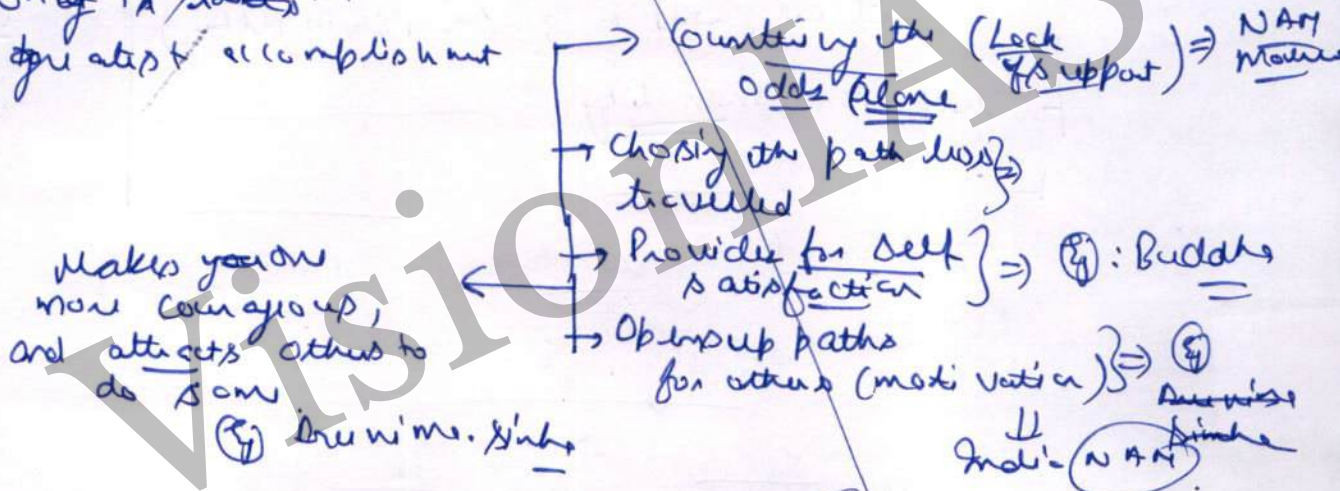 greatest accomplishment
→ Countering the (Lack of support) ⇒ NAM
odds alone
→ Chosing the path less } ⇒
travelled
→ Provides for self } ⇒ Eg : Buddha
satisfaction
→ Opens up paths
for others (motivation) } ⇒ Eg
Sinha
India NAM
Makes you
more courageous,
and attracts others to
do same
Eg Arunima. Sinha
VisionIAS